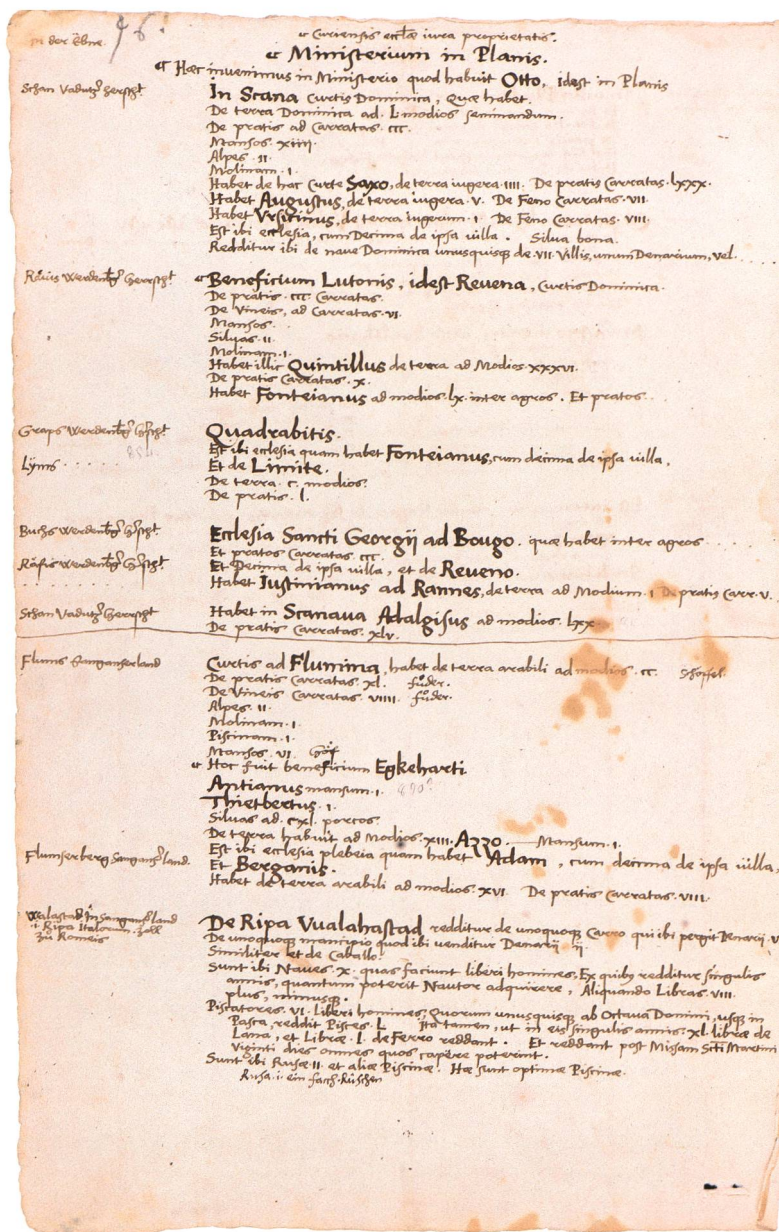 In der Ebne 96.
Curiensis eccłæ iura proprietatis.
Ministerium in Planis.
Hæc invenimus in Ministerio quod habuit Otto, idest in Planis
Schan Vadutzer herrscht
In Scana Curtis Dominica, Quæ habet.
De terra Dominica ad. L modios seminandum.
De pratis ad Carratas. ccc.
Mansos. xiiii.
Alpes. II.
Molinam. I.
Habet de hac Curte Saxo, de terra iugera. IIII. De pratis Carratas. lxxx.
Habet Augustus, de terra iugera. V. De Feno Carratas. VII.
Habet Vrsicinus, de terra iugerum. I. De Feno Carratas. VIII.
Est ibi ecclesia, cum Decima de ipsa villa. Silva bona.
Redditur ibi de nave Dominica unusquisq de. VII. Villis, unum Denarium, vel . . . .
Räuis Werdenbg Herrscht
Beneficium Lutonis, idest Revena, Curtis Dominica.
De pratis. ccc. Carratas.
De Vineis, ad Carratas. VI.
Mansos.
Silvas. II.
Molinam. I.
Habet illic Quintillus de terra ad Modios. XXXVI.
De pratis Carratas. X.
Habet Fonteianus ad modios. lx. inter agros. Et pratos . . .
Graps Werdenbg hscht
Quadrabitis.
Est ibi ecclesia quam habet Fonteianus, cum decima de ipsa villa,
Lyms . . . . . .
Et de Limite.
De terra. c. modios.
De pratis. l.
Buchs Werdenbg hscht
Ecclesia Sancti Georgij ad Bougo. quæ habet inter agros . . . . .
Et pratos Carratas. ccc.
Räfis Werdenbg hscht
Et Decima de ipsa villa, et de Reueno.
. . . . . . .
Habet Iustinianus ad Rannes, de terra ad Modium. I De pratis Carr. V.
Schan Vadutzer Herrscht
Habet in Scanava Adalgisus ad modios. lxx
De pratis Carratas. xlv.
Flums Sanganserland
Curtis ad Flumina, habet de terra arabili ad modios. cc. Schöffel
De pratis Carratas. xl. füder.
De Vineis Carratas. VIIII. füder.
Alpes. II.
Molinam. I.
Piscinam. I.
Mansos. VI. Höf
Hoc fuit beneficium Egkeharti
Antianus mansum. I.
Thietbertus. I.
Silvas ad. cxl. porcos.
De terra habuit ad Modios. XIII. Azzo. Mansum. I.
Est ibi ecclesia plebeia quam habet Adam, cum decima de ipsa villa,
Flumserberg Sanganserland.
Et Berganis.
Habet de terra arabili ad modios. XVI. De pratis Carratas. VIII.
Walastad in Sanganserland
.i. Ripa Italorum. Zoll
zů Romeis
De Ripa Vualahastad redditur de unoquoq Carro qui ibi pergit Denarii. V
De unoquoq mancipio quod ibi venditur Denarii II.
Similiter et de Caballo.
Sunt ibi Naves. X. quas faciunt liberi homines, Ex quib redditur singulis
annis, quantum poterit Nautor adquirere, Aliquando Libras. VIII.
plus, minusque.
Piscatores. VI. liberi homines, Quorum unusquisq ab Octava Domini, usq in
Pasca, reddit Pisces. L Ita tamen, ut in eis singulis annis. xl. libræ de
Lana, et Libræ. l. de Ferro reddant. Et reddant post Missam Scti Martini
Viginti dies omnes quos capere poterint.
Sunt ibi Rusæ. II. et aliæ Piscinæ. Hæ sunt optimæ Piscinæ.
Rusa. i. ein fach. Rüschen